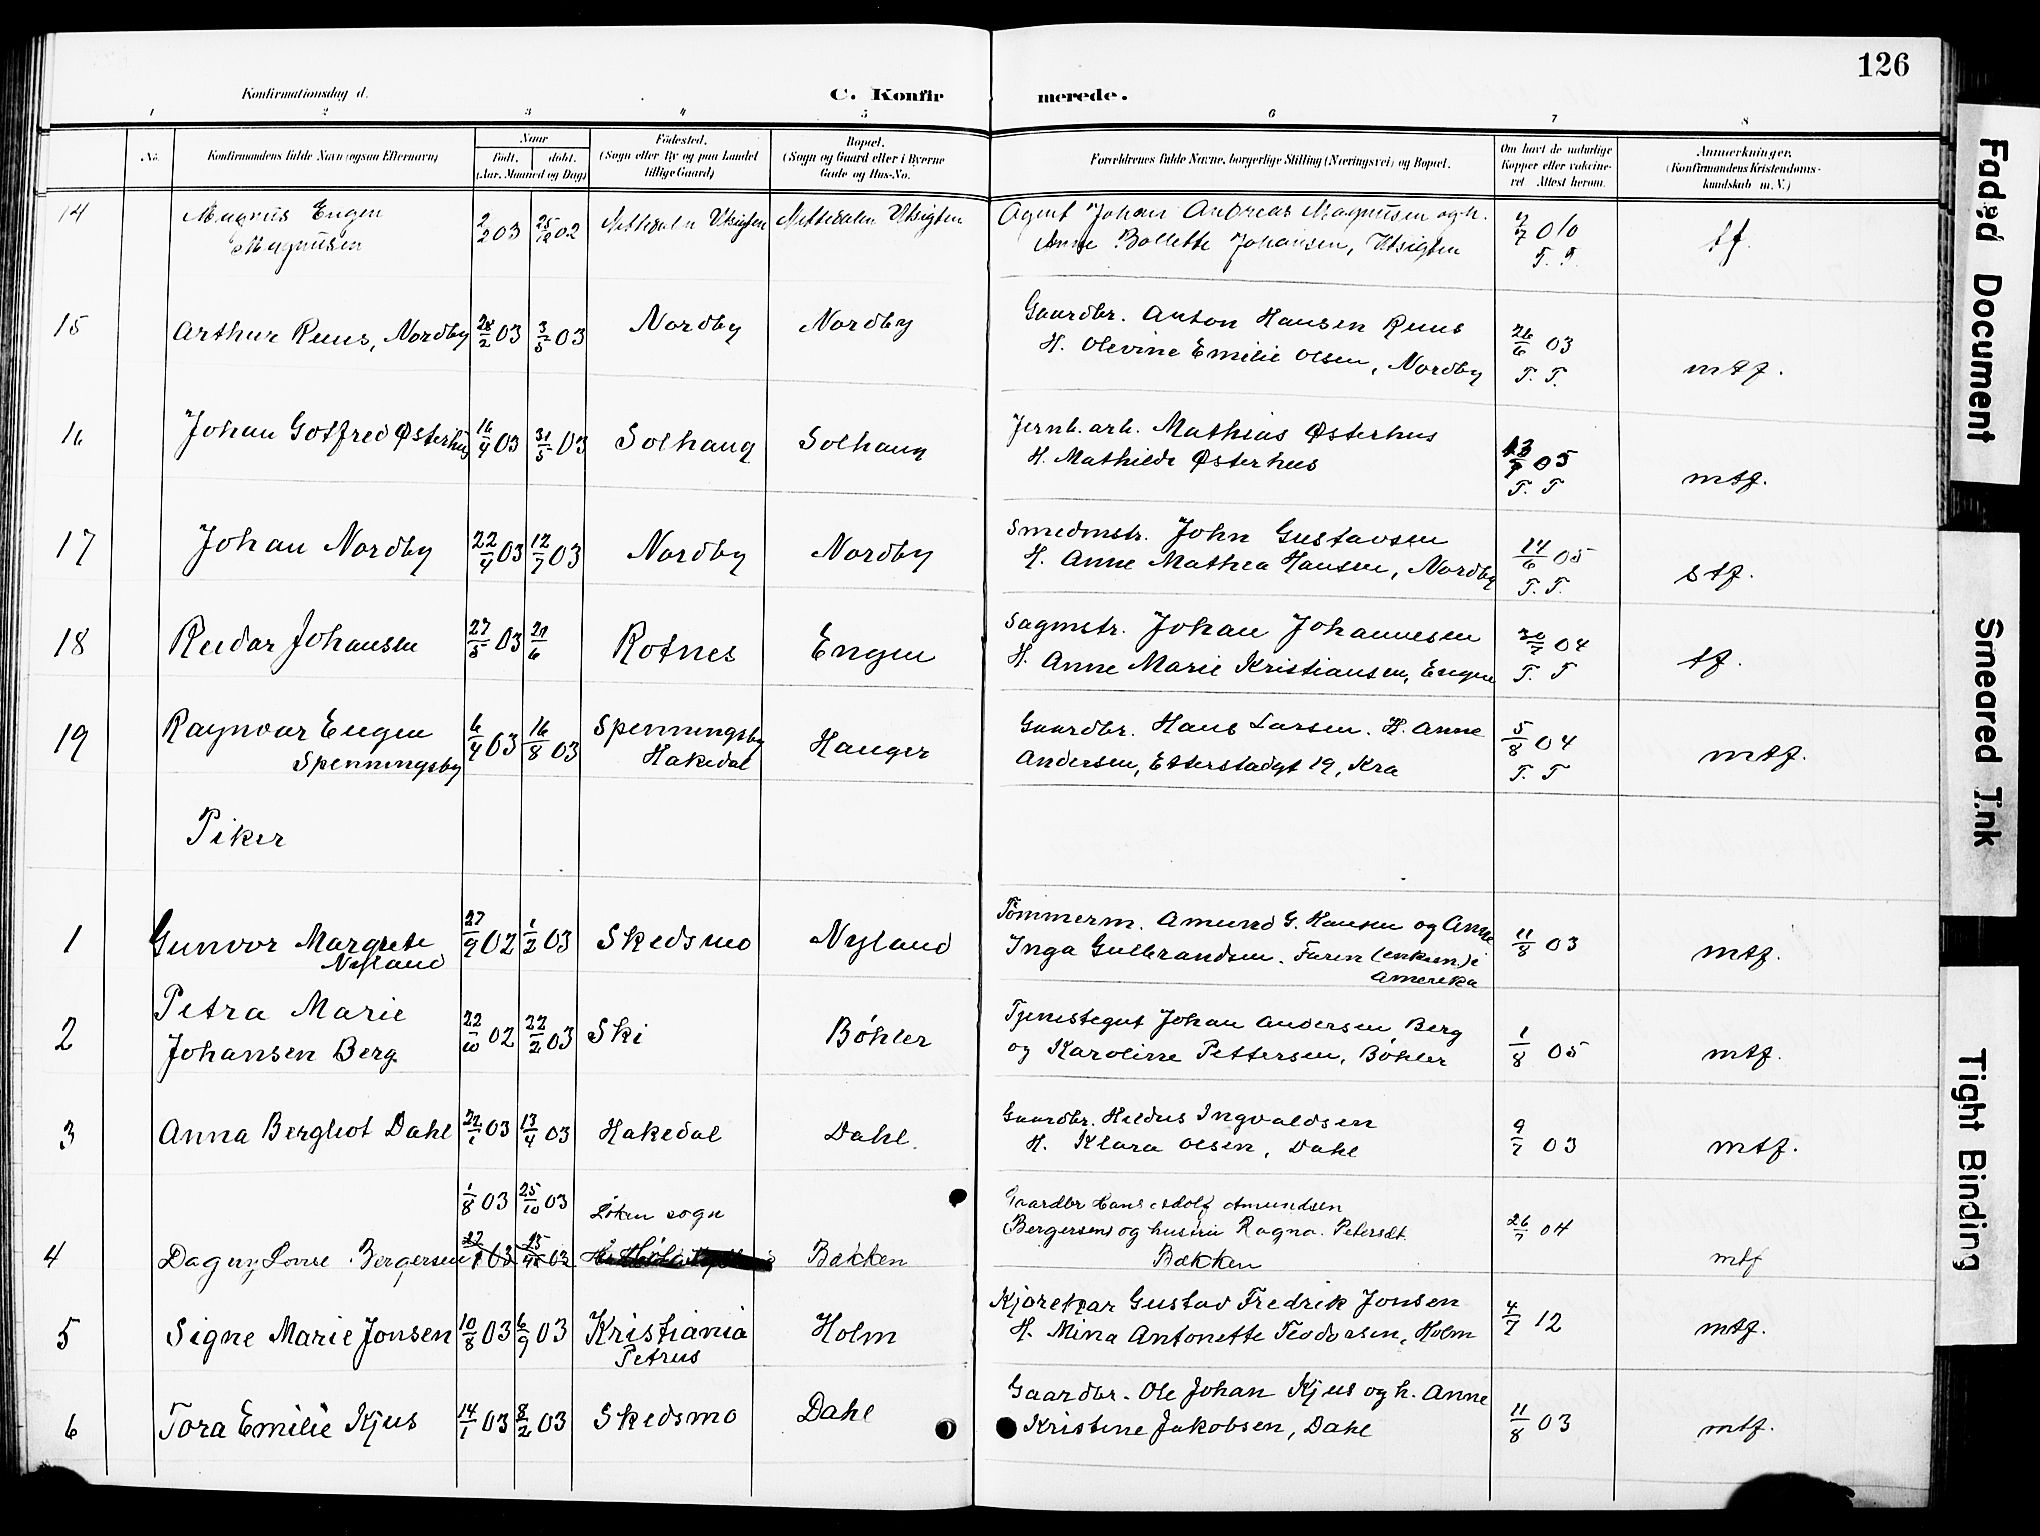 126
Konfirmationsdag d.
C. Konfir merede.
1 2 3 4 5 6 7 8
No. Konfirmandens fulde Navn (ogsaa Efternavn)
Naar
Født. døbt.
(Aar, Maaned og Dag)
Fødested.
(Sogn eller By og paa Landet
tillige Gaard)
Bopæl.
(Sogn og Gaard eller i Byerne
Gade og Hus-No.
Forældrenes fulde Navne, borgerlige Stilling (Næringsvei) og Bopæl.
Om havt de naturlige
Kopper eller vaksine-
ret Attest herom.
Anmerkninger.
(Konfirmandens Kristendoms-
kundskab m. V.)
14 Magnus Engen 2/2 03 25/12 02 Nittedalen Utsigten Nittedalen Utsigten Agent Johan Andreas Magnusen og h.
Magnusen Anne Bollette Johansen, Utsigten tf.
15 Arthur Ruus, Nordby 28/2 03 3/5 03 Nordby Nordby Gaardbr. Anton Hansen Ruus 26/6 03
H. Olevine Emilie Olsen, Nordby T. T. mtf.
16 Johan Gotfred Østerhus 16/4 03 31/5 03 Solhaug Solhaug Jernb. arb. Mathias Østerhus 05
H. Mathilde Østerhus T. T mtf.
17 Johan Nordby 22/4 03 12/7 03 Nordby Nordby Smedmstr. John Gustavsen 14/6 05
H. Anne Mathea Hansen, Nordby T. T. stf.
18 Reidar Johansen 27/5 03 21/6 Rotnes Engen Sagmstr. Johan Johannesen 04
H. Anne Marie Kristiansen, Engen T. T tf.
19 Raynvar Eugen 6/4 03 16/8 03 Spenningsby Hauger Gaardbr. Hans Larsen. H. Anne 5/8 04
Spenningsby Hakedal Andersen, Etterstadgt 19, Kra T. T mtf.
Piker
1 Gunvor Margrete 27/9 02 1/2 03 Skedsmo Nyland Tømmerm. Amund G. Hansen og Anne 11/8 03
Nyland Inga Gulbrandsen. Faren (enkem.) i mtf.
Amerika
2 Petra Marie 22/10 02 22/2 03 Ski Bøhler Tjenestegut Johan Andersen Berg 1/8 05
Johansen Berg og Karoline Pettersen, Bøhler mtf.
3 Anna Bergliot Dahl 22/1 03 13/4 03 Hakedal Dahl. Gaardbr. Hildus Ingvaldsen 9/7 03
H. Klara Olsen, Dahl mtf.
1/8 03 25/10 03 Løken sogn Gaardbr Hans Adolf Amundsen
Bergersens og hustru Ragna Petersdt. 26/7 04
4 Dagny Lovise Bergersen Bakken Bakken mtf
5 Signe Marie Jonsen 10/8 03 6/9 03 Kristiania Holm Kjørekar Gustav Fredrik Jonsen 4/7 12
Petrus H. Mina Antonette Teodorsen, Holm mtf.
6 Tora Emilie Kjus 14/1 03 8/2 03 Skedsmo Dahl Gaardbr. Ole Johan Kjus og h. Anne 11/8 03
Kristine Jakobsen, Dahl mtf.
Faded Document
Smeared Ink
Tight Binding